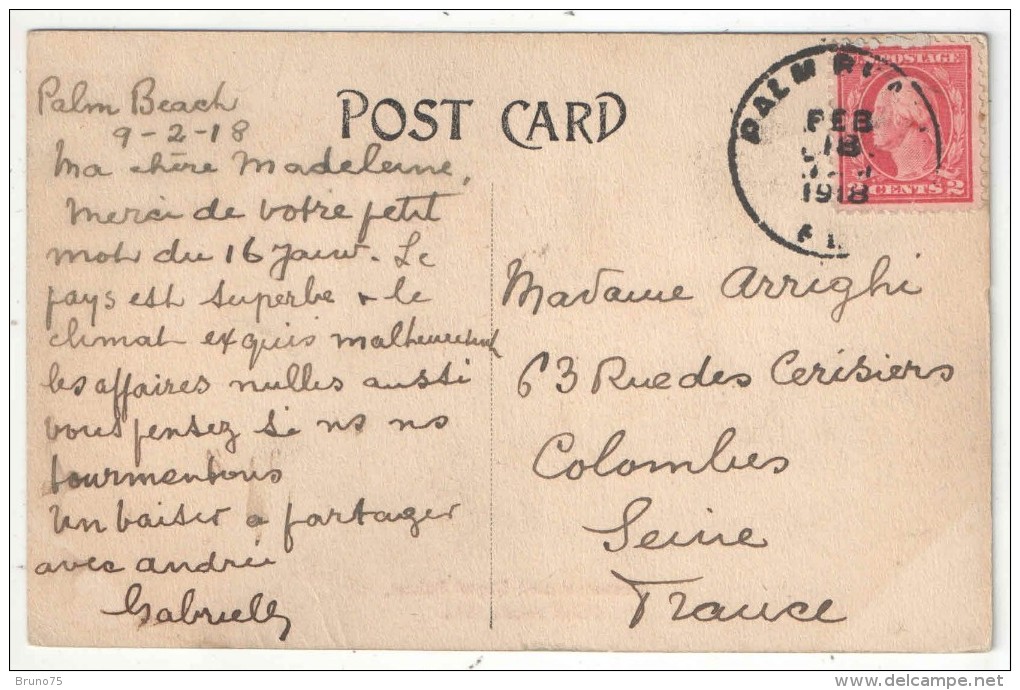 POST CARD
Palm Beach
9-2-18
Ma chère Madeleine,
Merci de votre petit
mot du 16 Janv. Le
pays est superbe & le
climat exquis malheureusement
les affaires nulles aussi
vous pensez si ns ns
tourmentons
Un baiser à partager
avec andrée
Gabrielle
U.S. POSTAGE
CENTS 2
PALM
FEB
18
1918
Madame Arrighi
63 Rue des Cerisiers
Colombes
Seine
France
Bruno75
www.delcampe.net